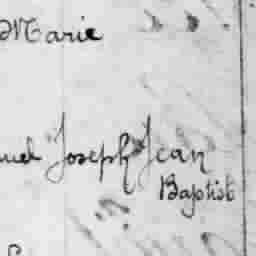 Marie
uel Joseph Jean
Baptist